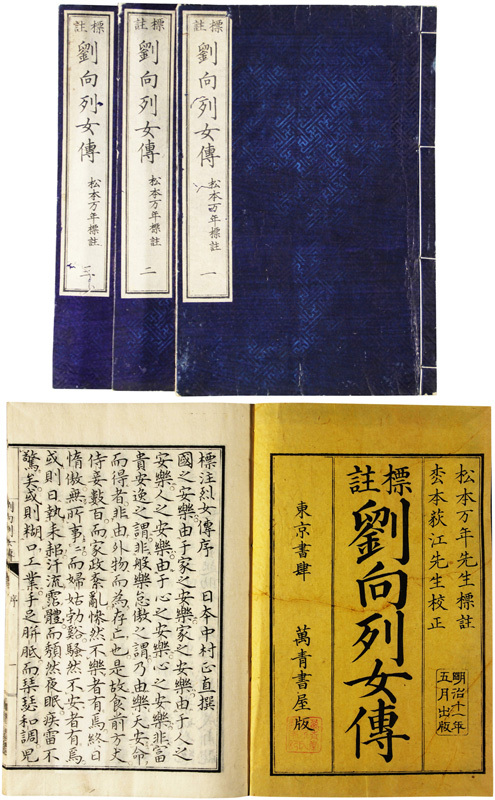 標註
劉向列女傳
松本万年標註 一
標註
劉向列女傳
松本万年標註 二
標註
劉向列女傳
松本万年標註 三
松本万年先生標註
枩本荻江先生校正
明治十一年
五月出版
標註
劉向列女傳
東京書肆 萬青書屋版
標注列女傳序 日本中村正直撰
國之安樂由于家之安樂家之安樂由于人之
安樂人之安樂由于心之安樂心之安樂非富
貴安逸之謂非般樂怠傲之謂乃由樂天安命
而得者非由外物而為存亡也是故食前方丈
侍妾數百而家政紊亂愀然不樂者有焉終日
惰傲無所事〻而婦姑勃谿騷然不安者有焉
或則日執耒耜汗流露體而頽然夜眠疾雷不
驚矣或則糊口工業手足胼胝而琹瑟和調兒